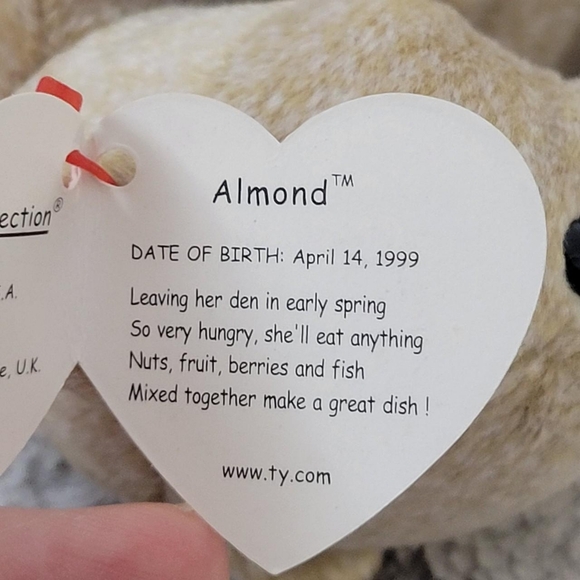 ection®
.A.
e, U.K.
Almond™
DATE OF BIRTH: April 14, 1999
Leaving her den in early spring
So very hungry, she'll eat anything
Nuts, fruit, berries and fish
Mixed together make a great dish !
www.ty.com